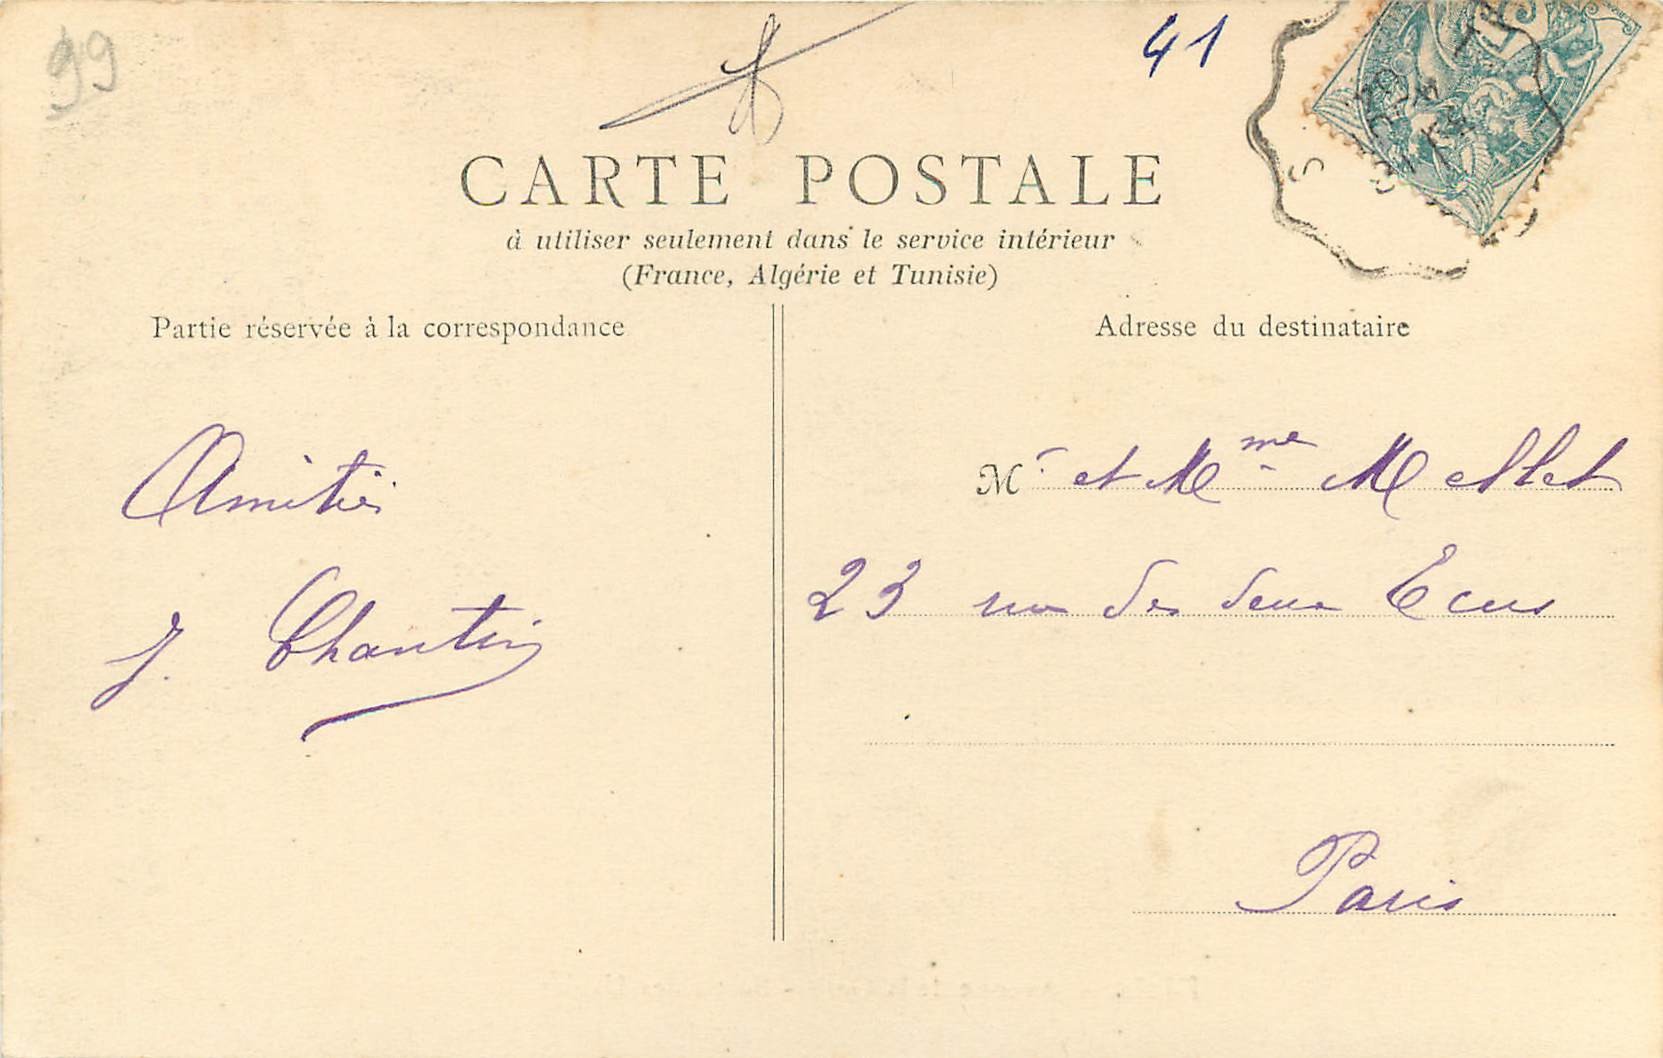 99
41
CARTE POSTALE
à utiliser seulement dans le service intérieur
(France, Algérie et Tunisie)
Partie réservée à la correspondance
Adresse du destinataire
Amitiés
J. Chantin
M r et Mme Mellet
23 rue des deux Ecus
Paris